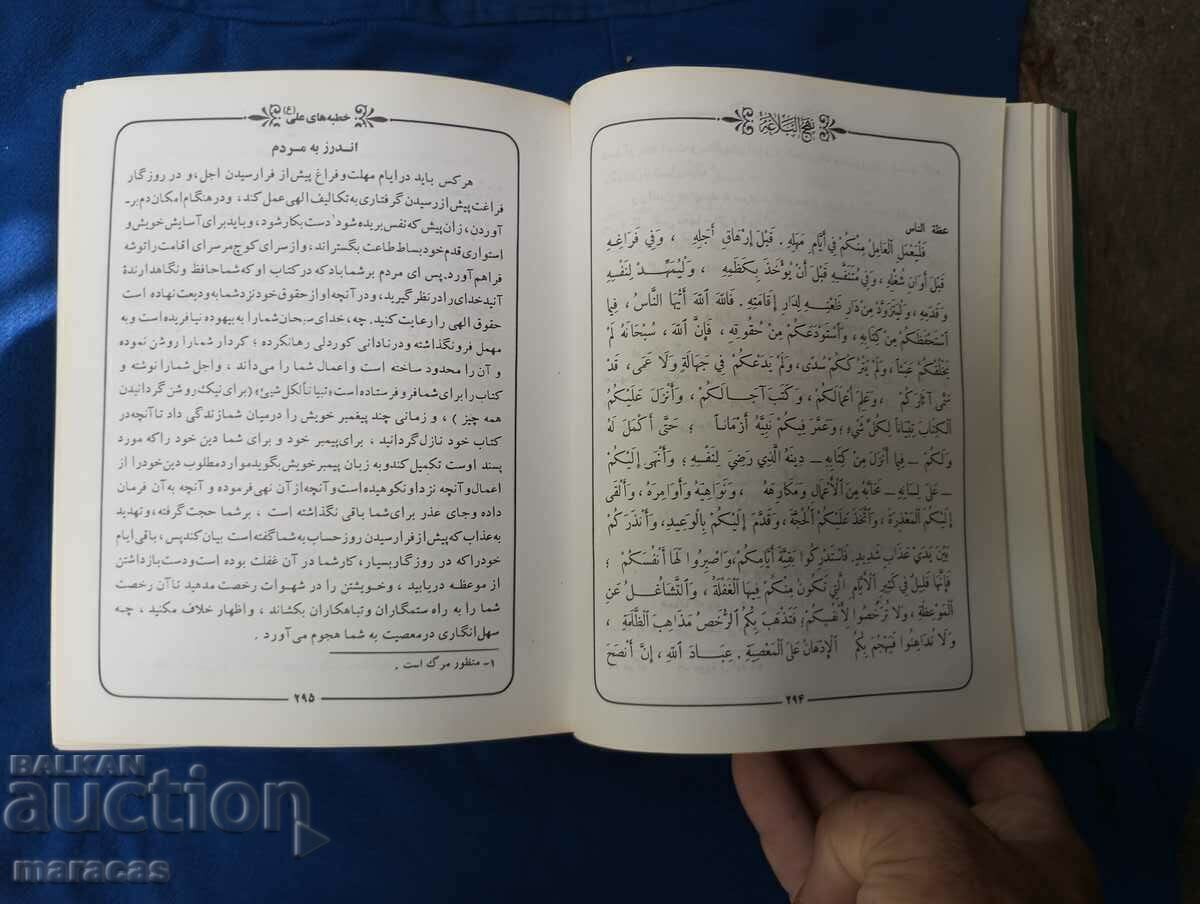 نهج البلاغة
عظة الناس
فَلْيَعْمَلِ الْعَامِلُ مِنْكُمْ فِي أَيَّامِ مَهَلِهِ . قَبْلَ إِرْهَاقِ أَجَلِهِ ، وَفِي فَرَاغِهِ
قَبْلَ أَوَانِ شُغُلِهِ ، وَفِي مُتَنَفَّسِهِ قَبْلَ أَنْ يُؤْخَذَ بِكَظَمِهِ ، وَلْيُمَهِّدْ لِنَفْسِهِ
وَقَدَمِهِ ، وَلْيَتَزَوَّدْ مِنْ دَارِ ظَعْنِهِ لِدَارِ إِقَامَتِهِ . فَاللهَ اللهَ أَيُّهَا النَّاسُ ، فِيمَا
اسْتَحْفَظَكُمْ مِنْ كِتَابِهِ ، وَاسْتَوْدَعَكُمْ مِنْ حُقُوقِهِ ، فَإِنَّ اللهَ ، سُبْحَانَهُ لَمْ
يَخْلُقْكُمْ عَبَثاً ، وَلَمْ يَتْرُكْكُمْ سُدًى ، وَلَمْ يَدَعْكُمْ فِي جَهَالَةٍ وَلَا عَمًى ، قَدْ
سَمَّى آثَارَكُمْ ، وَعَلِمَ أَعْمَالَكُمْ ، وَكَتَبَ آجَالَكُمْ ، وَأَنْزَلَ عَلَيْكُمُ
الْكِتَابَ تِبْيَاناً لِكُلِّ شَيْءٍ ؛ وَعَمَّرَ فِيكُمْ نَبِيَّهُ أَزْمَاناً ؛ حَتَّى أَكْمَلَ لَهُ
وَلَكُمْ – فِيمَا أَنْزَلَ مِنْ كِتَابِهِ – دِينَهُ الَّذِي رَضِيَ لِنَفْسِهِ ؛ وَأَنْهَى إِلَيْكُمْ
– عَلَى لِسَانِهِ – مَحَابَّهُ مِنَ الْأَعْمَالِ وَمَكَارِهَهُ ، وَنَوَاهِيَهُ وَأَوَامِرَهُ ، وَأَلْقَى
إِلَيْكُمُ الْمَعْذِرَةَ ، وَاتَّخَذَ عَلَيْكُمُ الْحُجَّةَ ، وَقَدَّمَ إِلَيْكُمْ بِالْوَعِيدِ ، وَأَنْذَرَكُمْ
بَيْنَ يَدَيْ عَذَابٍ شَدِيدٍ . فَاسْتَدْرِكُوا بَقِيَّةَ أَيَّامِكُمْ ، وَاصْبِرُوا لَهَا أَنْفُسَكُمْ ؛
فَإِنَّهَا قَلِيلٌ فِي كَثِيرِ الْأَيَّامِ الَّتِي تَكُونُ مِنْكُمْ فِيهَا الْغَفْلَةُ ، وَالتَّشَاغُلُ عَنِ
الْمَوْعِظَةِ ، وَلَا تُرَخِّصُوا لِأَنْفُسِكُمْ ؛ فَتَذْهَبَ بِكُمُ الرُّخَصُ مَذَاهِبَ الظَّلَمَةِ ،
وَلَا تُدَاهِنُوا فَيَهْجُمَ بِكُمُ الْإِدْهَانُ عَلَى الْمَعْصِيَةِ . عِبَادَ اللهِ ، إِنَّ أَنْصَحَ
۲۹۴
خطبه‌های علی (ع)
اندرز به مردم
هر کس باید در ایام مهلت و فراغ پیش از فرارسیدن اجل ، و در روزگار
فراغت پیش از رسیدن گرفتاری به تکالیف الهی عمل کند ، و در هنگام امکان دم بر-
آوردن ، زان پیش که نفس بریده شود ۱ دست بکار شود ، و باید برای آسایش خویش و
استواری قدم خود بساط طاعت بگستراند ، و از سرای کوچ مر سرای اقامت را توشه
فراهم آورد . پس ای مردم بر شما باد که در کتاب او که شما حافظ و نگاهدارندۀ
آنید خدای را در نظر گیرید ، و در آنچه او از حقوق خود نزد شما به ودیعت نهاده است
حقوق الهی را رعایت کنید . چه ، خدای سبحان شما را به بیهوده نیافریده است و به
مهمل فرونگذاشته و در نادانی کوردلی رها نکرده ؛ کردار شما را روشن نموده
و آن را محدود ساخته است و اعمال شما را می داند ، و اجل شما را نوشته و
کتاب را برای شما فرو فرستاده است «تبیاناً لکل شیئ» (برای نیک روشن گردانیدن
همه چیز ) ، و زمانی چند پیغمبر خویش را درمیان شما زندگی داد تا آنچه در
کتاب خود نازل گردانید ، برای پیمبر خود و برای شما دین خود را که مورد
پسند اوست تکمیل کند و به زبان پیمبر خویش بگوید موارد مطلوب دین خود را از
اعمال و آنچه نزد او نکوهیده است و آنچه از آن نهی فرموده و آنچه به آن فرمان
داده و جای عذر برای شما باقی نگذاشته است ، بر شما حجت گرفته ، و تهدید
به عذاب که پیش از فرارسیدن روز حساب به شما گفته است بیان کند پس ، باقی ایام
خود را که در روزگار بسیار ، کار شما در آن غفلت بوده است و دست بازداشتن
از موعظه دریابید ، و خویشتن را در شهوات رخصت مدهید تا آن رخصت
شما را به راه ستمگران و تباهکاران بکشاند ، و اظهار خلاف مکنید ، چه
سهل انگاری در معصیت به شما هجوم می آورد .
۱- منظور مرگ است .
۲۹۵
BALKAN
auction
maracas